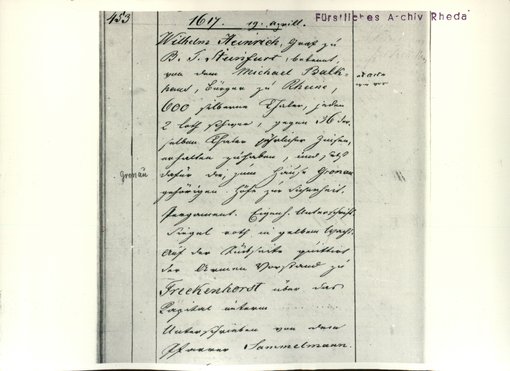 453
1617. 19. Aprill.
Fürstliches Archiv Rheda
Wilhelm Heinrich, Graf zu
B. T. Steinfurt, bekennt,
von dem Michael Balk-
haus, Bürger zu Rheine,
600 silberne Thaler, jeden
2 loth schwer, gegen 36 der-
selben Thaler jährlicher Zinsen,
erhalten zuhaben, und setzt
dafür die, zum Hause Gronau
gehörigen Höfe zur Sicherheit.
Gronau
Pergament. Eigenh. Unterschrift.
Siegel roth in gelbem Wachs.
Auf der Rückseite quittirt
der Armen Vorstand zu
Freckenhorst über das
Kapital
Unterschrieben von dem
Pfarrer Sammelmann.